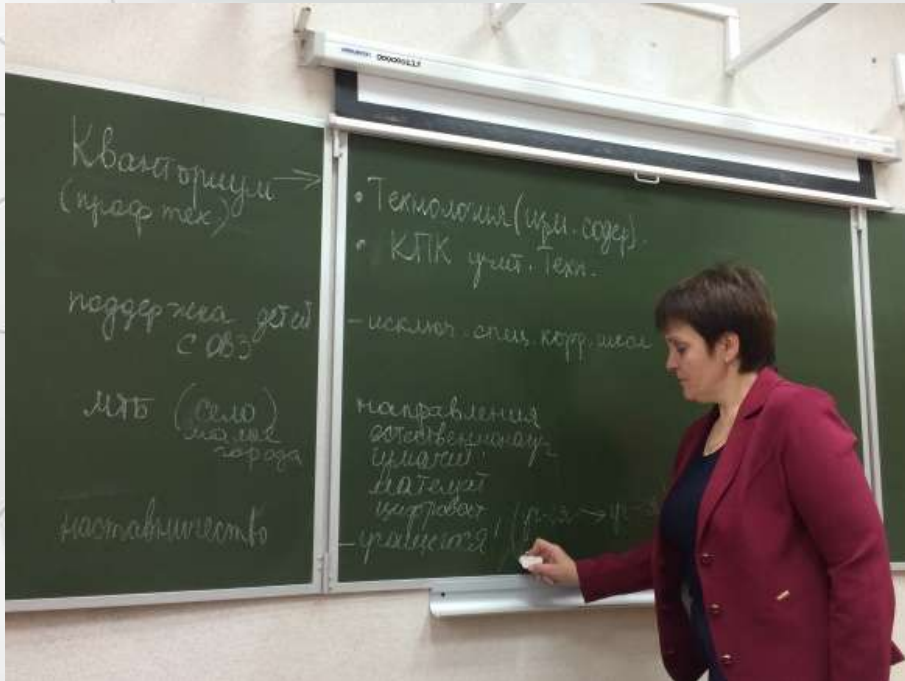 Кванториум →
(проф тех)
поддержка детей
с ОВЗ
МТБ (село)
малые
города
наставничество
• Технология (изм. содер).
• КПК учит. Техн.
- исключ. спец. корр. школ
направления
естественнонауч
гуманит
математ
цифровое
- учащегося